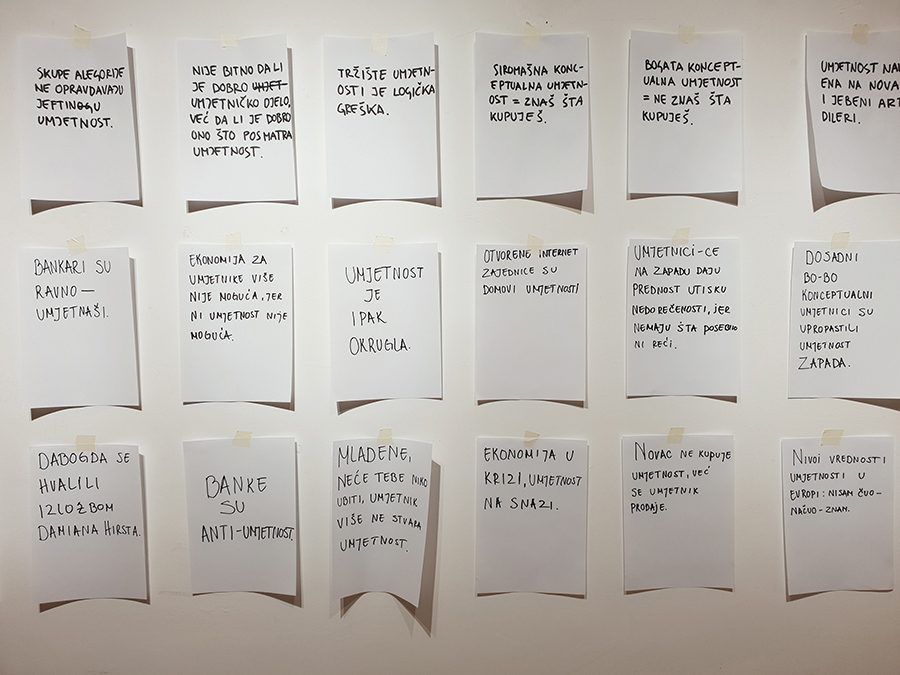 SKUPE ALEGORIJE
NE OPRAVDAVAJU
JEFTINOGU
UMJETNOST.
NIJE BITNO DA LI
JE DOBRO UMJET-
UMJETNIČKO DJELO,
VEĆ DA LI JE DOBRO
ONO ŠTO POSMATRA
UMJETNOST.
TRŽIŠTE UMJETN-
OSTI JE LOGIČKA
GREŠKA.
SIROMAŠNA KONC-
EPTUALNA UMJETN-
OST = ZNAŠ ŠTA
KUPUJEŠ.
BOGATA KONCEPT-
UALNA UMJETNOST
= NE ZNAŠ ŠTA
KUPUJEŠ.
UMJETNOST
ENA NA NOVA
I JEBENI ART
DILERI.
BANKARI SU
RAVNO—
UMJETNAŠI.
EKONOMIJA ZA
UMJETNIKE VIŠE
NIJE MOGUĆA, JER
NI UMJETNOST NIJE
MOGUĆA.
UMJETNOST
JE
IPAK
OKRUGLA.
OTVORENE INTERNET
ZAJEDNICE SU
DOMOVI UMJETNOSTI
UMJETNICI-CE
NA ZAPADU DAJU
PREDNOST UTISKU
NEDOREČENOSTI, JER
NEMAJU ŠTA POSEBNO
NI REĆI.
DOSADNI
BO-BO
KONCEPTUALNI
UMJETNICI SU
UPROPASTILI
UMJETNOST
ZAPADA.
DABOGDA SE
HVALILI
IZLOŽBOM
DAMIANA HIRSTA.
BANKE
SU
ANTI-UMJETNOST.
MLADENE,
NEĆE TEBE NIKO
UBITI, UMJETNIK
VIŠE NE STVARA
UMJETNOST.
EKONOMIJA U
KRIZI, UMJETNOST
NA SNAZI.
NOVAC NE KUPUJE
UMJETNOST, VEĆ
SE UMJETNIK
PRODAJE.
NIVOI VREDNOSTI
UMJETNOSTI U
EVROPI: NISAM ČUO-
NAČUO-ZNAM.